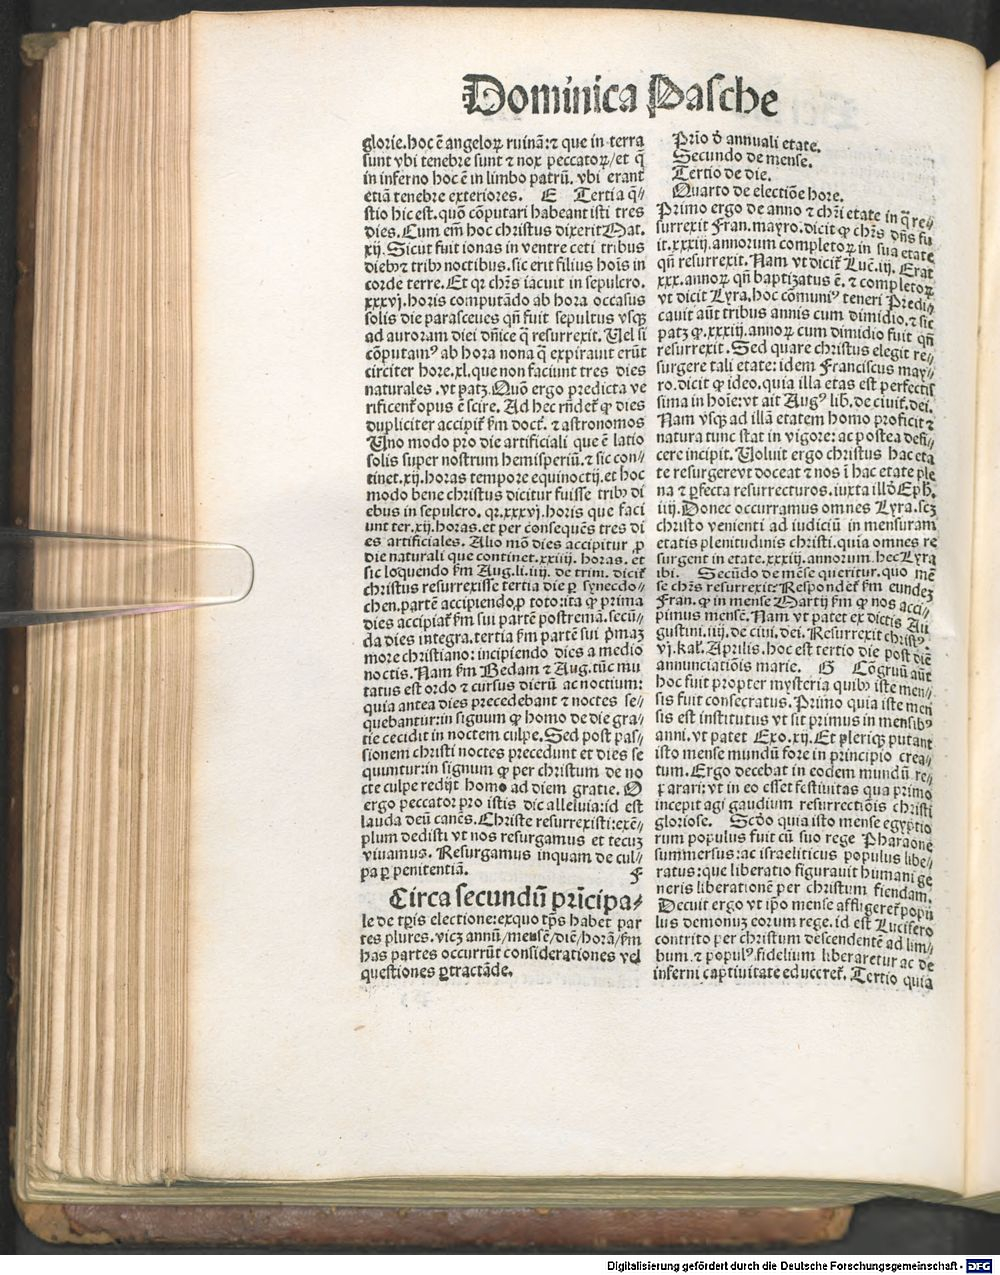 Dominica Pasche
glorie. hoc ē angeloꝝ ruinā: ⁊ que in terra
sunt vbi tenebre sunt ⁊ nox peccatoꝝ/et q̄
in inferno hoc ē in limbo patrū. vbi erant
etiā tenebre exteriores. E Tertia q̄⸗
stio hic est. quō cōputari habeant isti tres
dies. Cum em̄ hoc christus dixerit Mat.
xij. Sicut fuit ionas in ventre ceti tribus
dieb⁹ ⁊ trib⁹ noctibus. sic erit filius hoīs in
corde terre. Et qꝛ chr̄s iacuit in sepulcro.
xxxvj. horis computādo ab hora occasus
solis die parasceues qn̄ fuit sepultus vsqꝫ
ad auroram diei dn̄ice q̄ resurrexit. Uel si
cōputam⁹ ab hora nona q̄ expirauit erūt
circiter hore. xl. que non faciunt tres dies
naturales. vt patꝫ. Quō ergo predicta ve
rificent̄ opus ē scire. Ad hec rn̄det̄ ꝙ dies
dupliciter accipit̄ ẜm doct. ⁊ astronomos
Uno modo pro die artificiali que ē latio
solis super nostrum hemisperiū. ⁊ sic con⸗
tinet. xij. horas tempore equinoctij. et hoc
modo bene christus dicitur fuisse trib⁹ di
ebus in sepulcro. qꝛ. xxxvj. horis que faci
unt ter. xij. horas. et per cōsequēs tres di
es artificiales. Alio mō dies accipitur ꝓ
die naturali que continet. xxiiij. horas. et
sic loquendo ẜm Aug. li. iiij. de trini. dicit̄
christus resurrexisse tertia die ꝑ synecdo⸗
chen. partē accipiendo ꝓ toto: ita ꝙ prima
dies accipiat̄ ẜm sui partē postremā. secū⸗
da dies integra. tertia ẜm partē sui pͥmaꝫ
more christiano: incipiendo dies a medio
noctis. Nam ẜm Bedam ⁊ Aug. tūc mu
tatus est ordo ⁊ cursus dierū ac noctium:
quia antea dies precedebant ⁊ noctes se⸗
quebantur: in signum ꝙ homo de die gra⸗
tie cecidit in noctem culpe. Sed post pas⸗
sionem christi noctes precedunt et dies se
quuntur: in signum ꝙ per christum de no
cte culpe redijt homo ad diem gratie. O
ergo peccator pro istis dic alleluia: id est
lauda deū canēs. Christe resurrexisti: exē⸗
plum dedisti vt nos resurgamus et tecuꝫ
viuamus. Resurgamus inquam de cul⸗
pa ꝑ penitentiā. F
Circa secundū prīcipa⸗
le de tꝑis electione: exquo tp̄s habet par
tes plures. vicꝫ annū/mensē/diē/horā/ẜm
has partes occurrūt considerationes vel
questiones ꝑtractāde.
Prīo d̄ annuali etate.
Secundo de mense.
Tertio de die.
Quarto de electiōe hore.
Primo ergo de anno ⁊ chr̄i etate in q̄ re⸗
surrexit Fran. mayro. dicit ꝙ chr̄s dn̄s fu
it. xxxiij. annorum completoꝝ in sua etate
qn̄ resurrexit. Nam vt dicit̄ Luc̄. iij. Erat
xxx. annoꝝ qn̄ baptizatus ē. ⁊ completoꝝ
vt dicit Lyra. hoc cōmuni⁹ teneri Predi⸗
cauit aūt tribus annis cum dimidio. ⁊ sic
patꝫ ꝙ. xxxiij. annoꝝ cum dimidio fuit qn̄
resurrexit. Sed quare christus elegit re⸗
surgere tali etate: idem Franciscus may⸗
ro. dicit ꝙ ideo. quia illa etas est perfectis
sima in hoīe: vt ait Aug⁹ lib. de ciuit̄. dei.
Nam vsqꝫ ad illā etatem homo proficit ⁊
natura tunc stat in vigore: ac postea defi⸗
cere incipit. Uoluit ergo christus hac eta
te resurgere vt doceat ⁊ nos ī hac etate ple
na ⁊ ꝑfecta resurrecturos. iuxta illō Eph.
iiij. Donec occurramus omnes Lyra. scꝫ
christo venienti ad iudiciū in mensuram
etatis plenitudinis christi. quia omnes re
surgent in etate. xxxiij. annorum. hec Lyra
ibi. Secūdo de mēse queritur. quo mē
se chr̄s resurrexit: Respondet̄ ẜm eundeꝫ
Fran. ꝙ in mense Martij ẜm ꝙ nos acci⸗
pimus mensē. Nam vt patet ex dictis Au
gustini. iiij. de ciui. dei. Resurrexit christ⁹.
vj. kal. Aprilis. hoc est tertio die post diē
annunciatiōis marie. G Cōgruū aūt
hoc fuit propter mysteria quib⁹ iste men⸗
sis fuit consecratus. Primo quia iste men
sis est institutus vt sit primus in mensib⁹
anni. vt patet Exo. xij. Et pleriqꝫ putant
isto mense mundū fore in principio crea⸗
tum. Ergo decebat in eodem mundū re⸗
ꝑarari: vt in eo esset festiuitas qua primo
incepit agi gaudium resurrectiōis christi
gloriose. Scd̄o quia isto mense egyptio
rum populus fuit cū suo rege Pharaone
summersus: ac israeliticus populus libe⸗
ratus: que liberatio figurauit humani ge
neris liberationē per christum fiendam.
Decuit ergo vt ip̄o mense affligeret̄ popu
lus demonuꝫ eorum rege. id est Lucifero
contrito per christum descendentē ad lim⸗
bum. ⁊ popul⁹ fidelium liberaretur ac de
inferni captiuitate educeret̄. Tertio quia
Digitalisierung gefördert durch die Deutsche Forschungsgemeinschaft - DFG